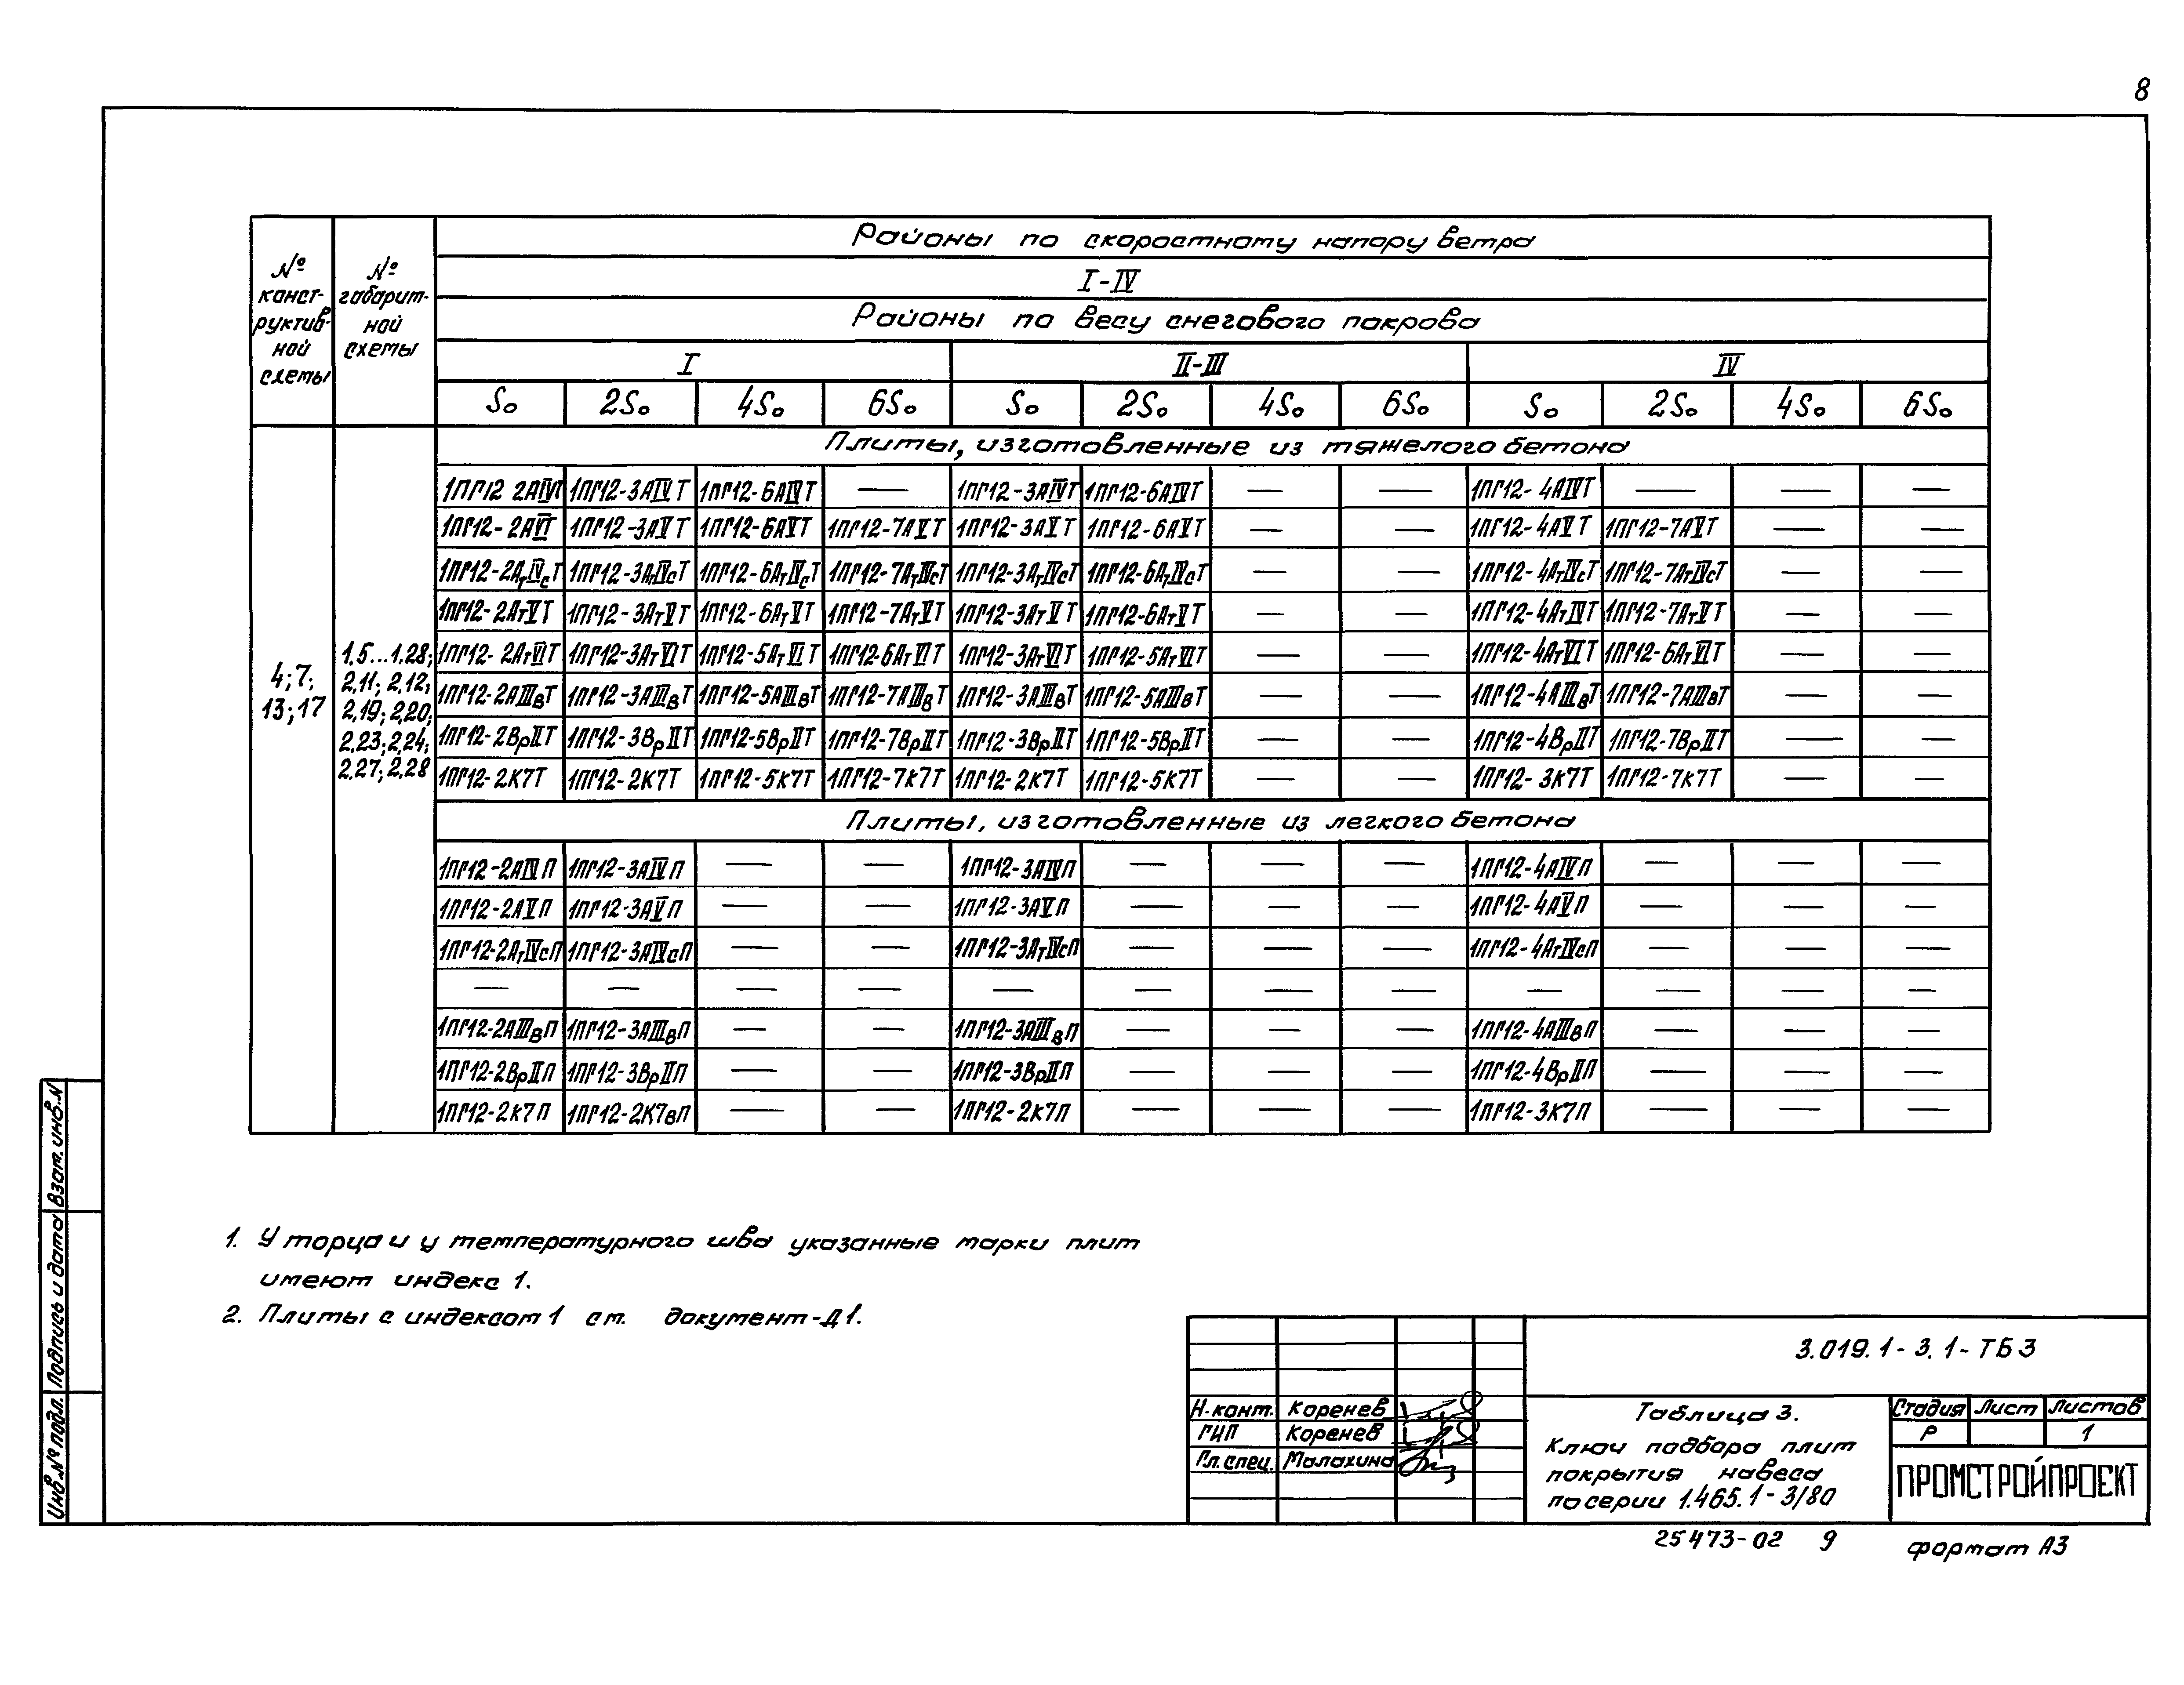 8
№ конст- руктив- ной схемы | № габарит- ной схемы | Районы по скоростному напору ветра
I-IV
Районы по весу снегового покрова
I | II-III | IV
S₀ | 2S₀ | 4S₀ | 6S₀ | S₀ | 2S₀ | 4S₀ | 6S₀ | S₀ | 2S₀ | 4S₀ | 6S₀
4; 7; 13; 17 | 1,5...1,28; 2,11; 2,12; 2,19; 2,20; 2,23; 2,24; 2,27; 2,28
Плиты, изготовленные из тяжелого бетона
1ПГ12 2АIVТ | 1ПГ12-3АIVТ | 1ПГ12-6АIVТ | — | 1ПГ12-3АIVТ | 1ПГ12-6АIVТ | — | — | 1ПГ12-4АIVТ | — | — | —
1ПГ12-2АVТ | 1ПГ12-3АVТ | 1ПГ12-6АVТ | 1ПГ12-7АVТ | 1ПГ12-3АVТ | 1ПГ12-6АVТ | — | — | 1ПГ12-4АVТ | 1ПГ12-7АVТ | — | —
1ПГ12-2АтIVсТ | 1ПГ12-3АтIVсТ | 1ПГ12-6АтIVсТ | 1ПГ12-7АтIVсТ | 1ПГ12-3АтIVсТ | 1ПГ12-6АтIVсТ | — | — | 1ПГ12-4АтIVсТ | 1ПГ12-7АтIVсТ | — | —
1ПГ12-2АтVТ | 1ПГ12-3АтVТ | 1ПГ12-6АтVТ | 1ПГ12-7АтVТ | 1ПГ12-3АтVТ | 1ПГ12-6АтVТ | — | — | 1ПГ12-4АтIVТ | 1ПГ12-7АтVТ | — | —
1ПГ12-2АтVIТ | 1ПГ12-3АтVIТ | 1ПГ12-5АтVIТ | 1ПГ12-6АтVIТ | 1ПГ12-3АтVIТ | 1ПГ12-5АтVIТ | — | — | 1ПГ12-4АтVIТ | 1ПГ12-6АтVIТ | — | —
1ПГ12-2АIIIвТ | 1ПГ12-3АIIIвТ | 1ПГ12-5АIIIвТ | 1ПГ12-7АIIIвТ | 1ПГ12-3АIIIвТ | 1ПГ12-5АIIIвТ | — | — | 1ПГ12-4АIIIвТ | 1ПГ12-7АIIIвТ | — | —
1ПГ12-2ВрIIТ | 1ПГ12-3ВрIIТ | 1ПГ12-5ВрIIТ | 1ПГ12-7ВрIIТ | 1ПГ12-3ВрIIТ | 1ПГ12-5ВрIIТ | — | — | 1ПГ12-4ВрIIТ | 1ПГ12-7ВрIIТ | — | —
1ПГ12-2К7Т | 1ПГ12-2К7Т | 1ПГ12-5К7Т | 1ПГ12-7К7Т | 1ПГ12-2К7Т | 1ПГ12-5К7Т | — | — | 1ПГ12-3К7Т | 1ПГ12-7К7Т | — | —
Плиты, изготовленные из легкого бетона
1ПГ12-2АIVП | 1ПГ12-3АIVП | — | — | 1ПГ12-3АIVП | — | — | — | 1ПГ12-4АIVП | — | — | —
1ПГ12-2АVП | 1ПГ12-3АVП | — | — | 1ПГ12-3АVП | — | — | — | 1ПГ12-4АVП | — | — | —
1ПГ12-2АтIVсП | 1ПГ12-3АIVсП | — | — | 1ПГ12-3АтIVсП | — | — | — | 1ПГ12-4АтIVсП | — | — | —
— | — | — | — | — | — | — | — | — | — | — | —
1ПГ12-2АIIIвП | 1ПГ12-3АIIIвП | — | — | 1ПГ12-3АIIIвП | — | — | — | 1ПГ12-4АIIIвП | — | — | —
1ПГ12-2ВрIIП | 1ПГ12-3ВрIIП | — | — | 1ПГ12-3ВрIIП | — | — | — | 1ПГ12-4ВрIIП | — | — | —
1ПГ12-2К7П | 1ПГ12-2К7вП | — | — | 1ПГ12-2К7П | — | — | — | 1ПГ12-3К7П | — | — | —
1. У торца и у температурного шва указанные марки плит
имеют индекс 1.
2. Плиты с индексом 1 см. документ-Д1.
3.019.1-3.1-ТБ3
Н.конт. Коренев
ГИП Коренев
Гл.спец. Малахина
Таблица 3.
Ключ подбора плит
покрытия навеса
по серии 1.465.1-3/80
Стадия Лист Листов
Р 1
ПРОМСТРОЙПРОЕКТ
25473-02 9
формат А3
Инв.№ подл. Подпись и дата Взам. инв. N